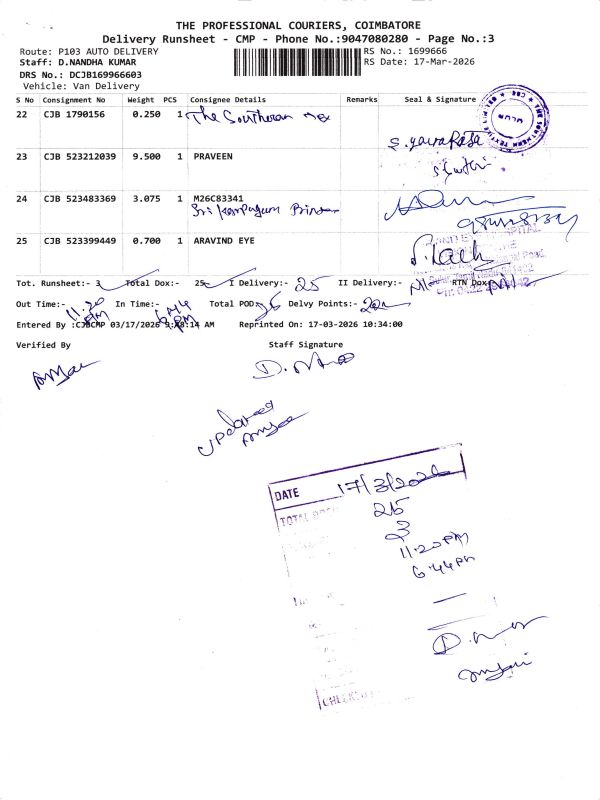 THE PROFESSIONAL COURIERS, COIMBATORE
Delivery Runsheet - CMP - Phone No.:9047080280 - Page No.:3
Route: P103 AUTO DELIVERY
RS No.: 1699666
Staff: D.NANDHA KUMAR
RS Date: 17-Mar-2026
DRS No.: DCJB169966603
Vehicle: Van Delivery
S No Consignment No Weight PCS Consignee Details Remarks Seal & Signature
22 CJB 1790156 0.250 1 The Southern
23 CJB 523212039 9.500 1 PRAVEEN
24 CJB 523483369 3.075 1 M26C83341
25 CJB 523399449 0.700 1 ARAVIND EYE
Tot. Runsheet:- 3 Total Dox:- 25 I Delivery:- 25 II Delivery:- Nil RTN Dox:- Nil
Out Time:- 11:20 PM In Time:- 6:44 PM Total POD: 25 Delvy Points:-
Entered By :CJBCMP 03/17/2026 Reprinted On: 17-03-2026 10:34:00
Verified By Staff Signature
Updated
DATE 17/3/2026
25
3
11:20 PM
6:44 PM
CHECKED